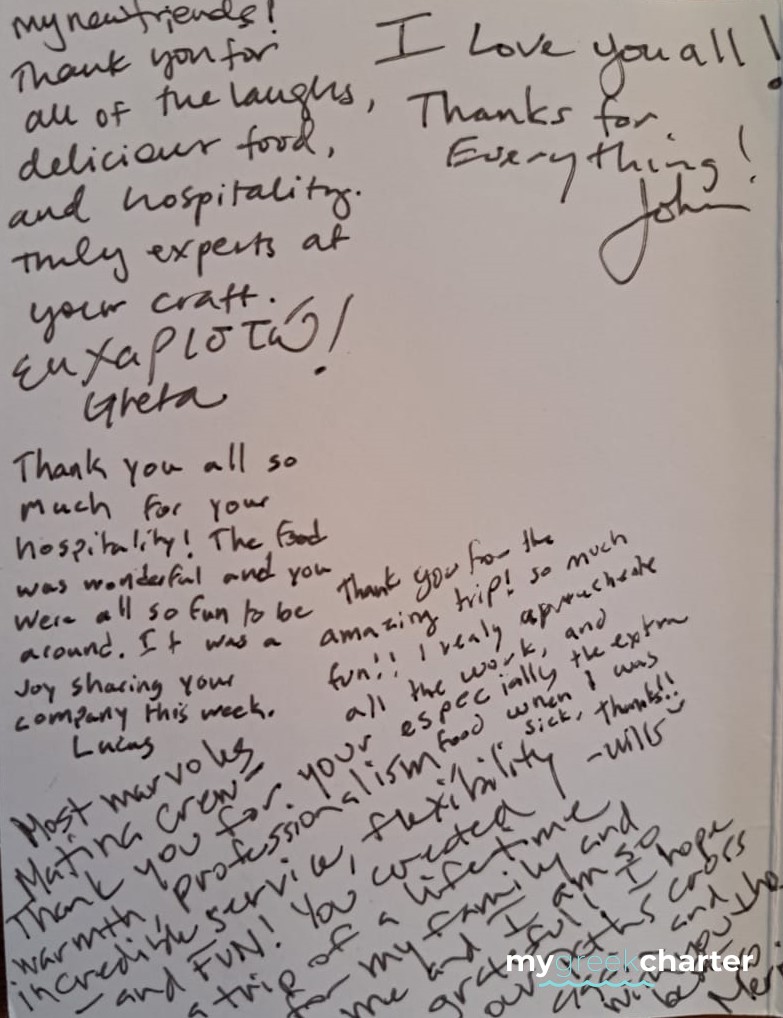 my new friends!
Thank you for
all of the laughs,
deliciour food,
and hospitality.
Truly experts at
your craft.
ευχαριστώ!
Greta
I Love you all!
Thanks for
Everything!
John
Thank you all so
much for your
hospitality! The food
was wonderful and you
were all so fun to be
around. It was a
Joy sharing your
company this week.
Lucas
Thank you for the
amazing trip! so much
fun!! I realy apprecheate
all the work, and
especially the extra
food when I was
sick, thanks!!
-Wills
Most marvolus
Matina crew-
Thank you for your
warmth, professionalism
incredible service, flexibility
- and FUN! You created
a trip of a lifetime
for my family and
me and I am so
grateful! I hope
our paths cross
again and
wish you the
best.
mygreekcharter